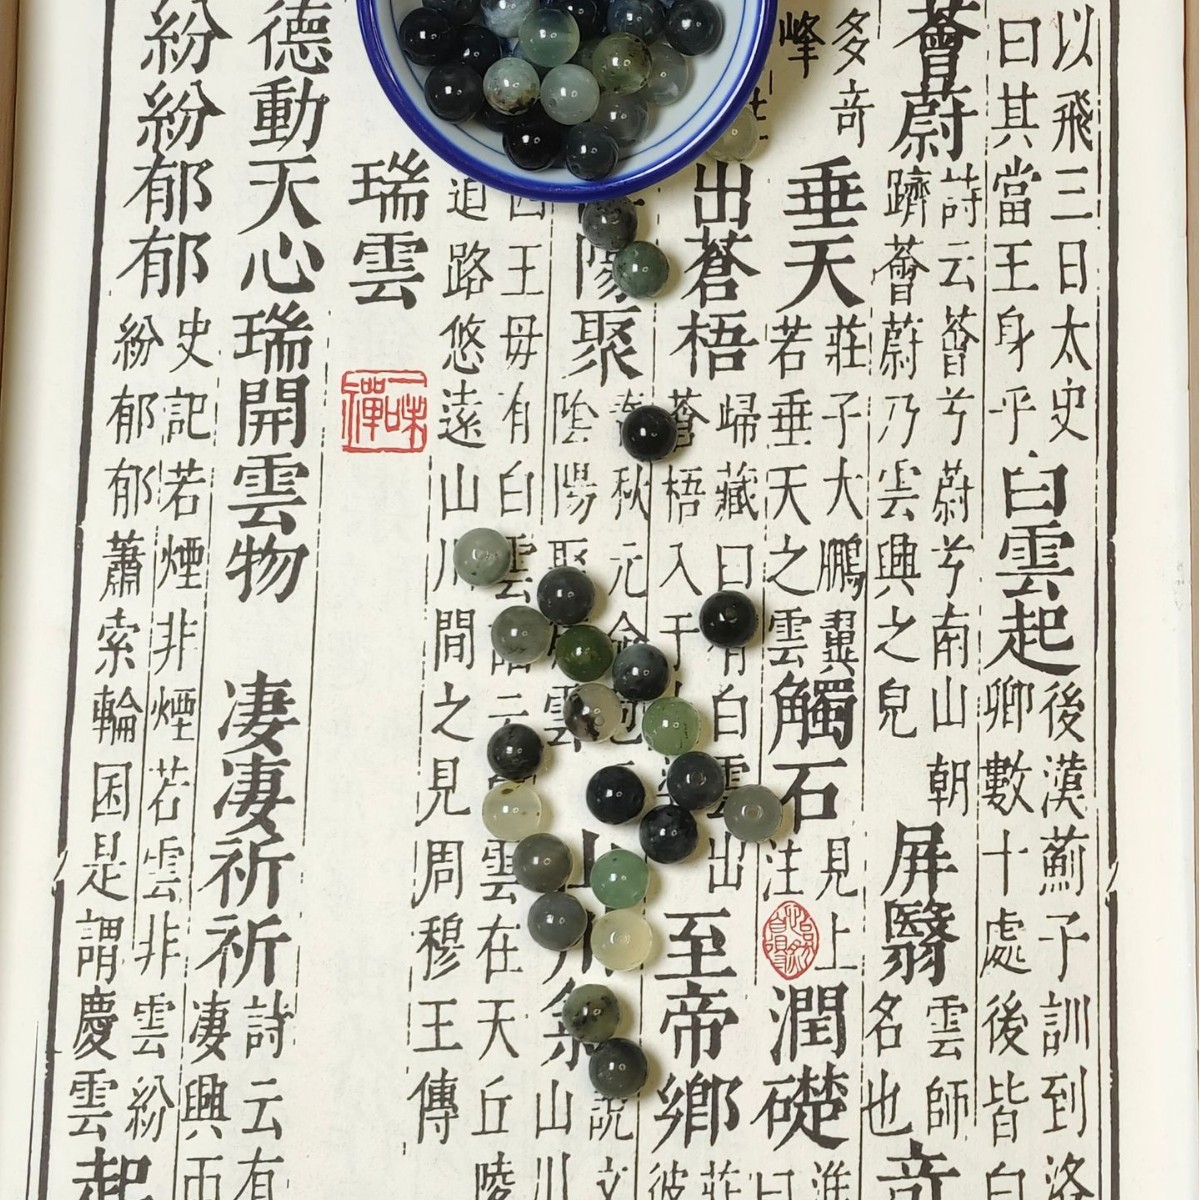 以飛三日太史
曰其當王身乎
白雲起
後漢薊子訓到洛
卿數十處後皆白
薈蔚
詩云薈兮蔚兮南山朝
躋薈蔚乃雲興之皃
屏翳
雲師
名也
奇
多奇
峰
垂天
莊子大鵬翼
若垂天之雲
觸石
見上
注
潤礎
淮
曰
出蒼梧
歸藏曰有白雲出
蒼梧入于
至帝鄉
莊
彼
陽聚
秋元命
陰陽聚
山川
說文
山川
西王母有白雲謠云 雲在天丘陵
道路悠遠山川間之見周穆王傳
瑞雲
一味禪
德動天心瑞開雲物
淒淒祈祈
詩云有
淒興而
紛紛郁郁
史記若煙非煙若雲非雲紛
紛郁郁蕭索輪囷是謂慶雲
起